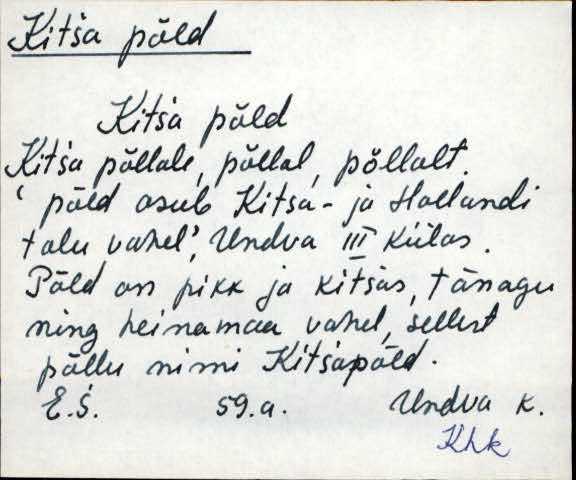 Kitśa põld
Kitśa põld
Kitśa põllale, põllal, põllalt.
‘põld asub Kitsa- ja Hollandi
talu vahel’, Undva III külas.
Põld on pikk ja kitśas, tänagu
ning heinamaa vahel, sellest
põllu nimi Kitśapõld.
E.Ś. 59.a. Undva k.
Khk